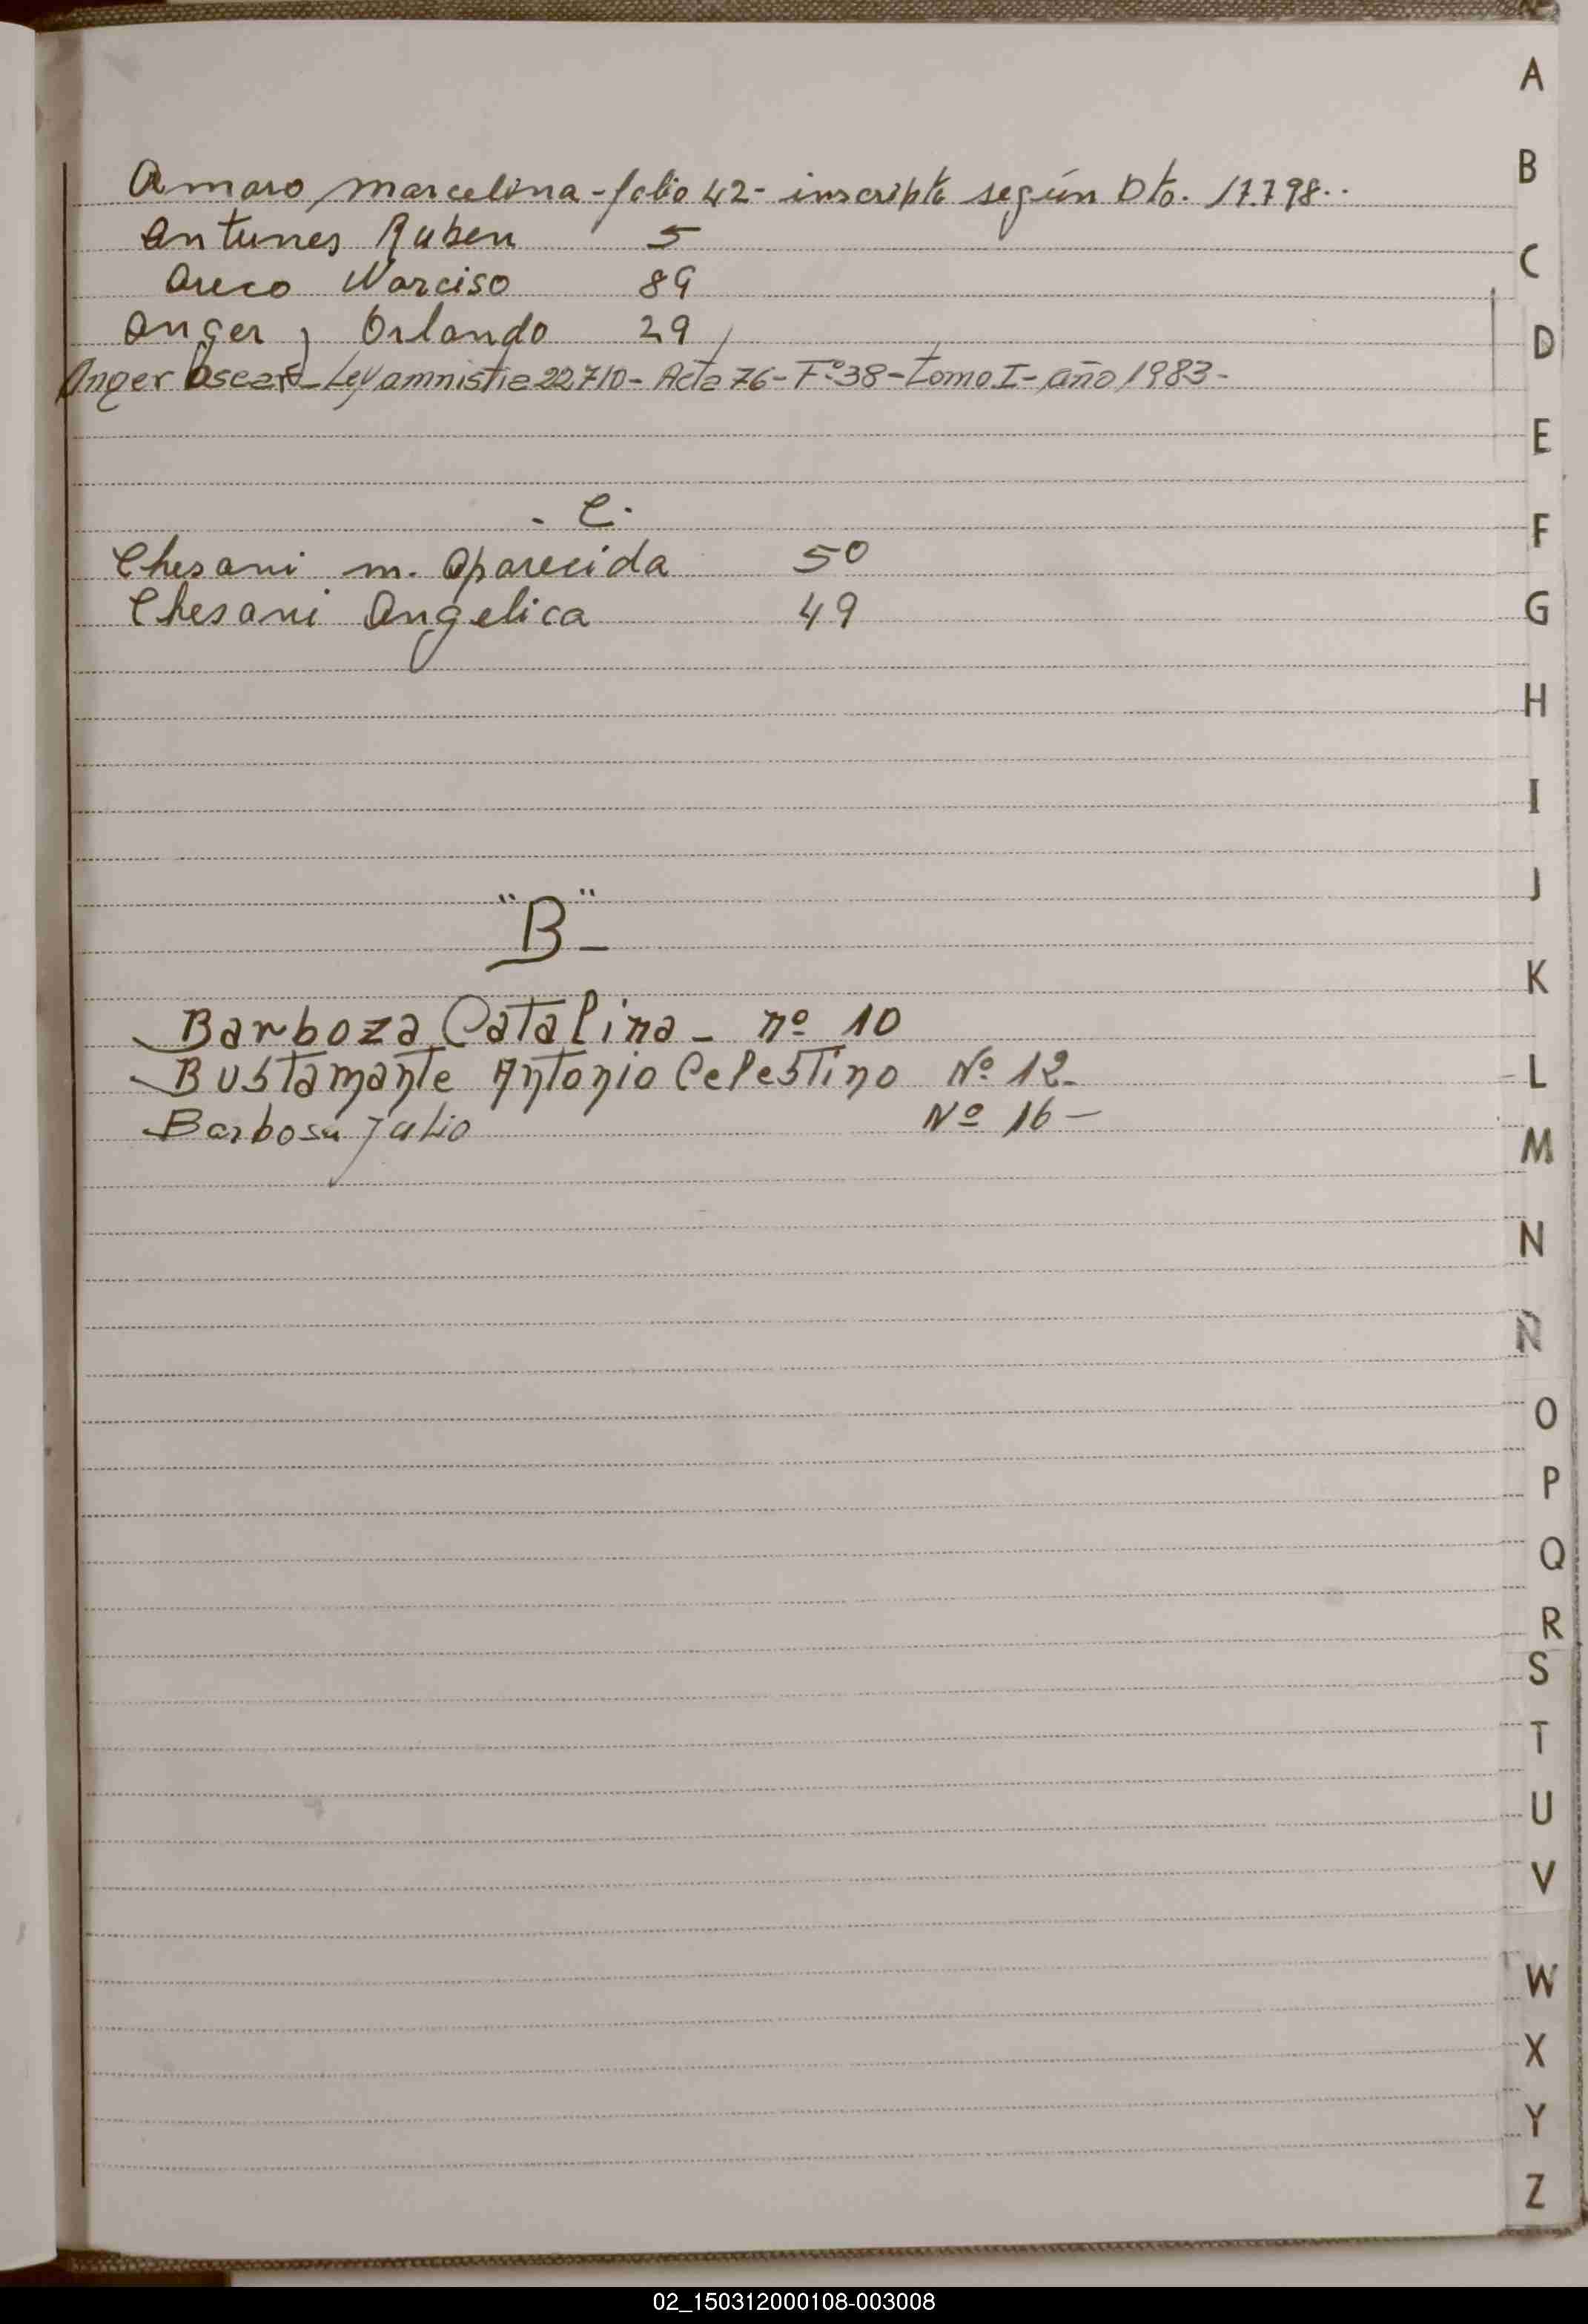 Amaro, Marcelina - folio 42 - inscripta según Dto. 17.798..
Antunes Ruben 5
Areco Narciso 89
Anger, Orlando 29
Anger Oscar - Ley amnistia 22.710 - Acta 76 - Fº 38 - Tomo I - año 1983 -
- C -
Chesani M. Aparecida 50
Chesani Angelica 49
"B" -
Barboza Catalina - nº 10
Bustamante Antonio Celestino Nº 12 -
Barbosa Julio Nº 16 -
A
B
C
D
E
F
G
H
I
J
K
L
M
N
Ñ
O
P
Q
R
S
T
U
V
W
X
Y
Z
02_150312000108-003008